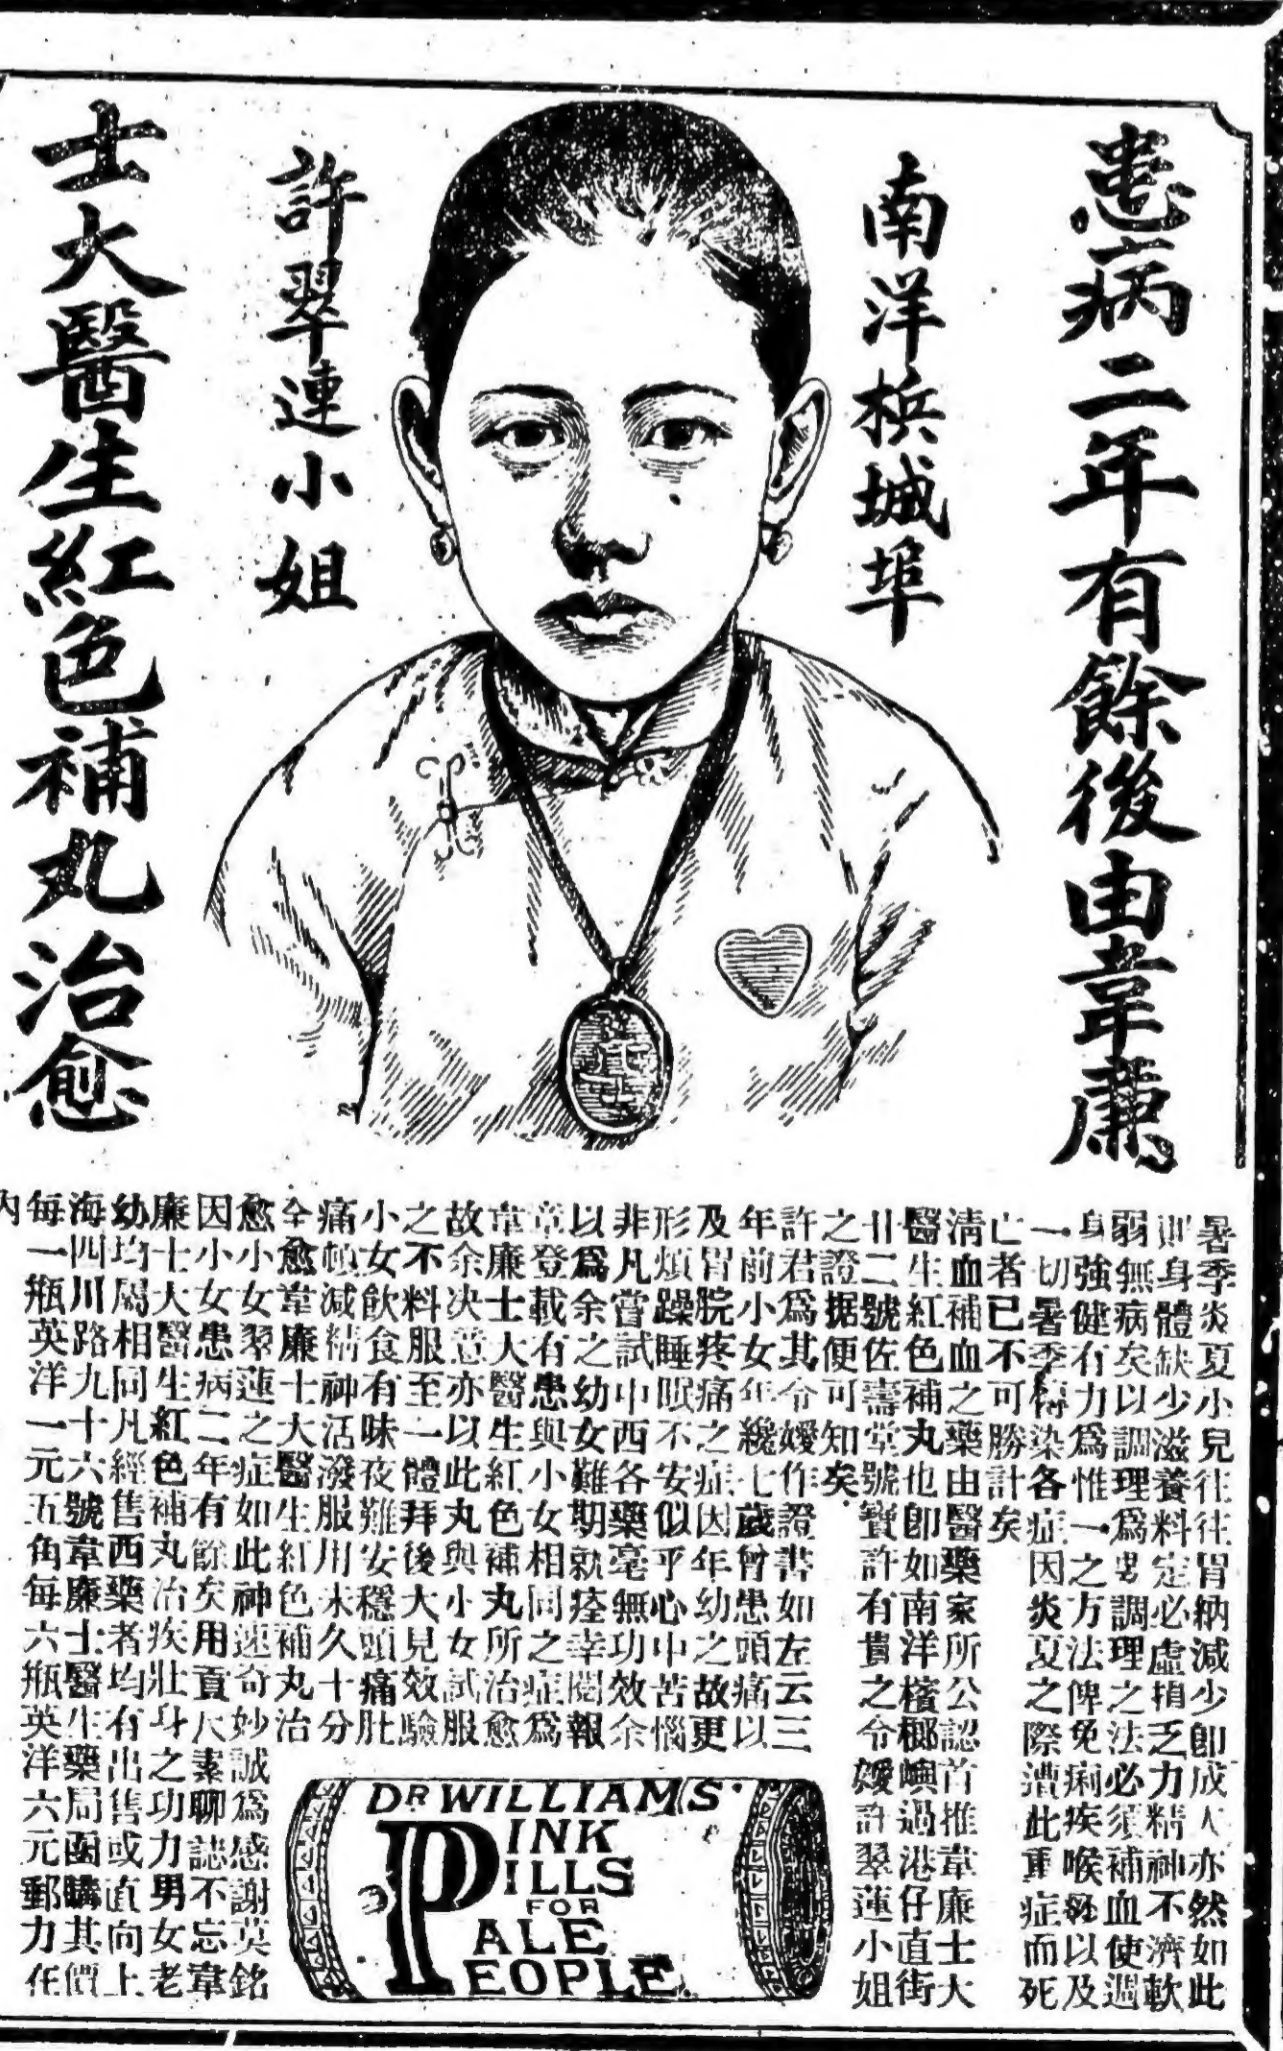 患病二年有餘後由韋廉
士大醫生紅色補丸治愈
南洋梹城埠
許翠連小姐
暑季炎夏小兒往往胃納減少卽成人亦然如此
則身體缺少滋養料定必虛損乏力精神不濟軟
弱無病矣以調理爲男調理之法必須補血使週
身強健有力爲惟一之方法俾免痢疾喉痧以及
一切暑季傳染各症因炎夏之際遭此重症而死
亡者已不可勝計矣
淸血補血之藥由醫藥家所公認首推韋廉士大
醫生紅色補丸也卽如南洋檳榔嶼過港仔直街
廿二號佐壽堂號寶許有貴之令嬡許翠蓮小姐
之證据便可知矣
許君爲其令嬡作證書如左云三
年前小女年纔七歲曾患頭痛以
及胃脘疼痛之症因年幼之故更
形煩躁睡眠不安似乎心中苦惱
非凡嘗試中西各藥毫無功效余
以爲余之幼女難期就痊幸閱報
章登載有患與小女相同之症爲
韋廉士大醫生紅色補丸所治愈
故余决意亦以此丸與小女試服
之不料服至一體拜後大見效驗
小女飲食有味夜難安穩頭痛肚
痛頓減精神活潑服用未久十分
全愈韋廉士大醫生紅色補丸治
愈小女翠蓮之症如此神速奇妙誠爲感謝英銘
因小女患病二年有餘矣用貢尺素聊誌不忘韋
廉士大醫生紅色補丸治疾壯身之功力男女老
幼均屬相同凡經售西藥者均有出售或直向上
海四川路九十六號韋廉士醫生藥局函購其價
每一瓶英洋一元五角每六瓶英洋六元郵力在
內
DR WILLIAMS'
PINK
PILLS
FOR
PALE
PEOPLE